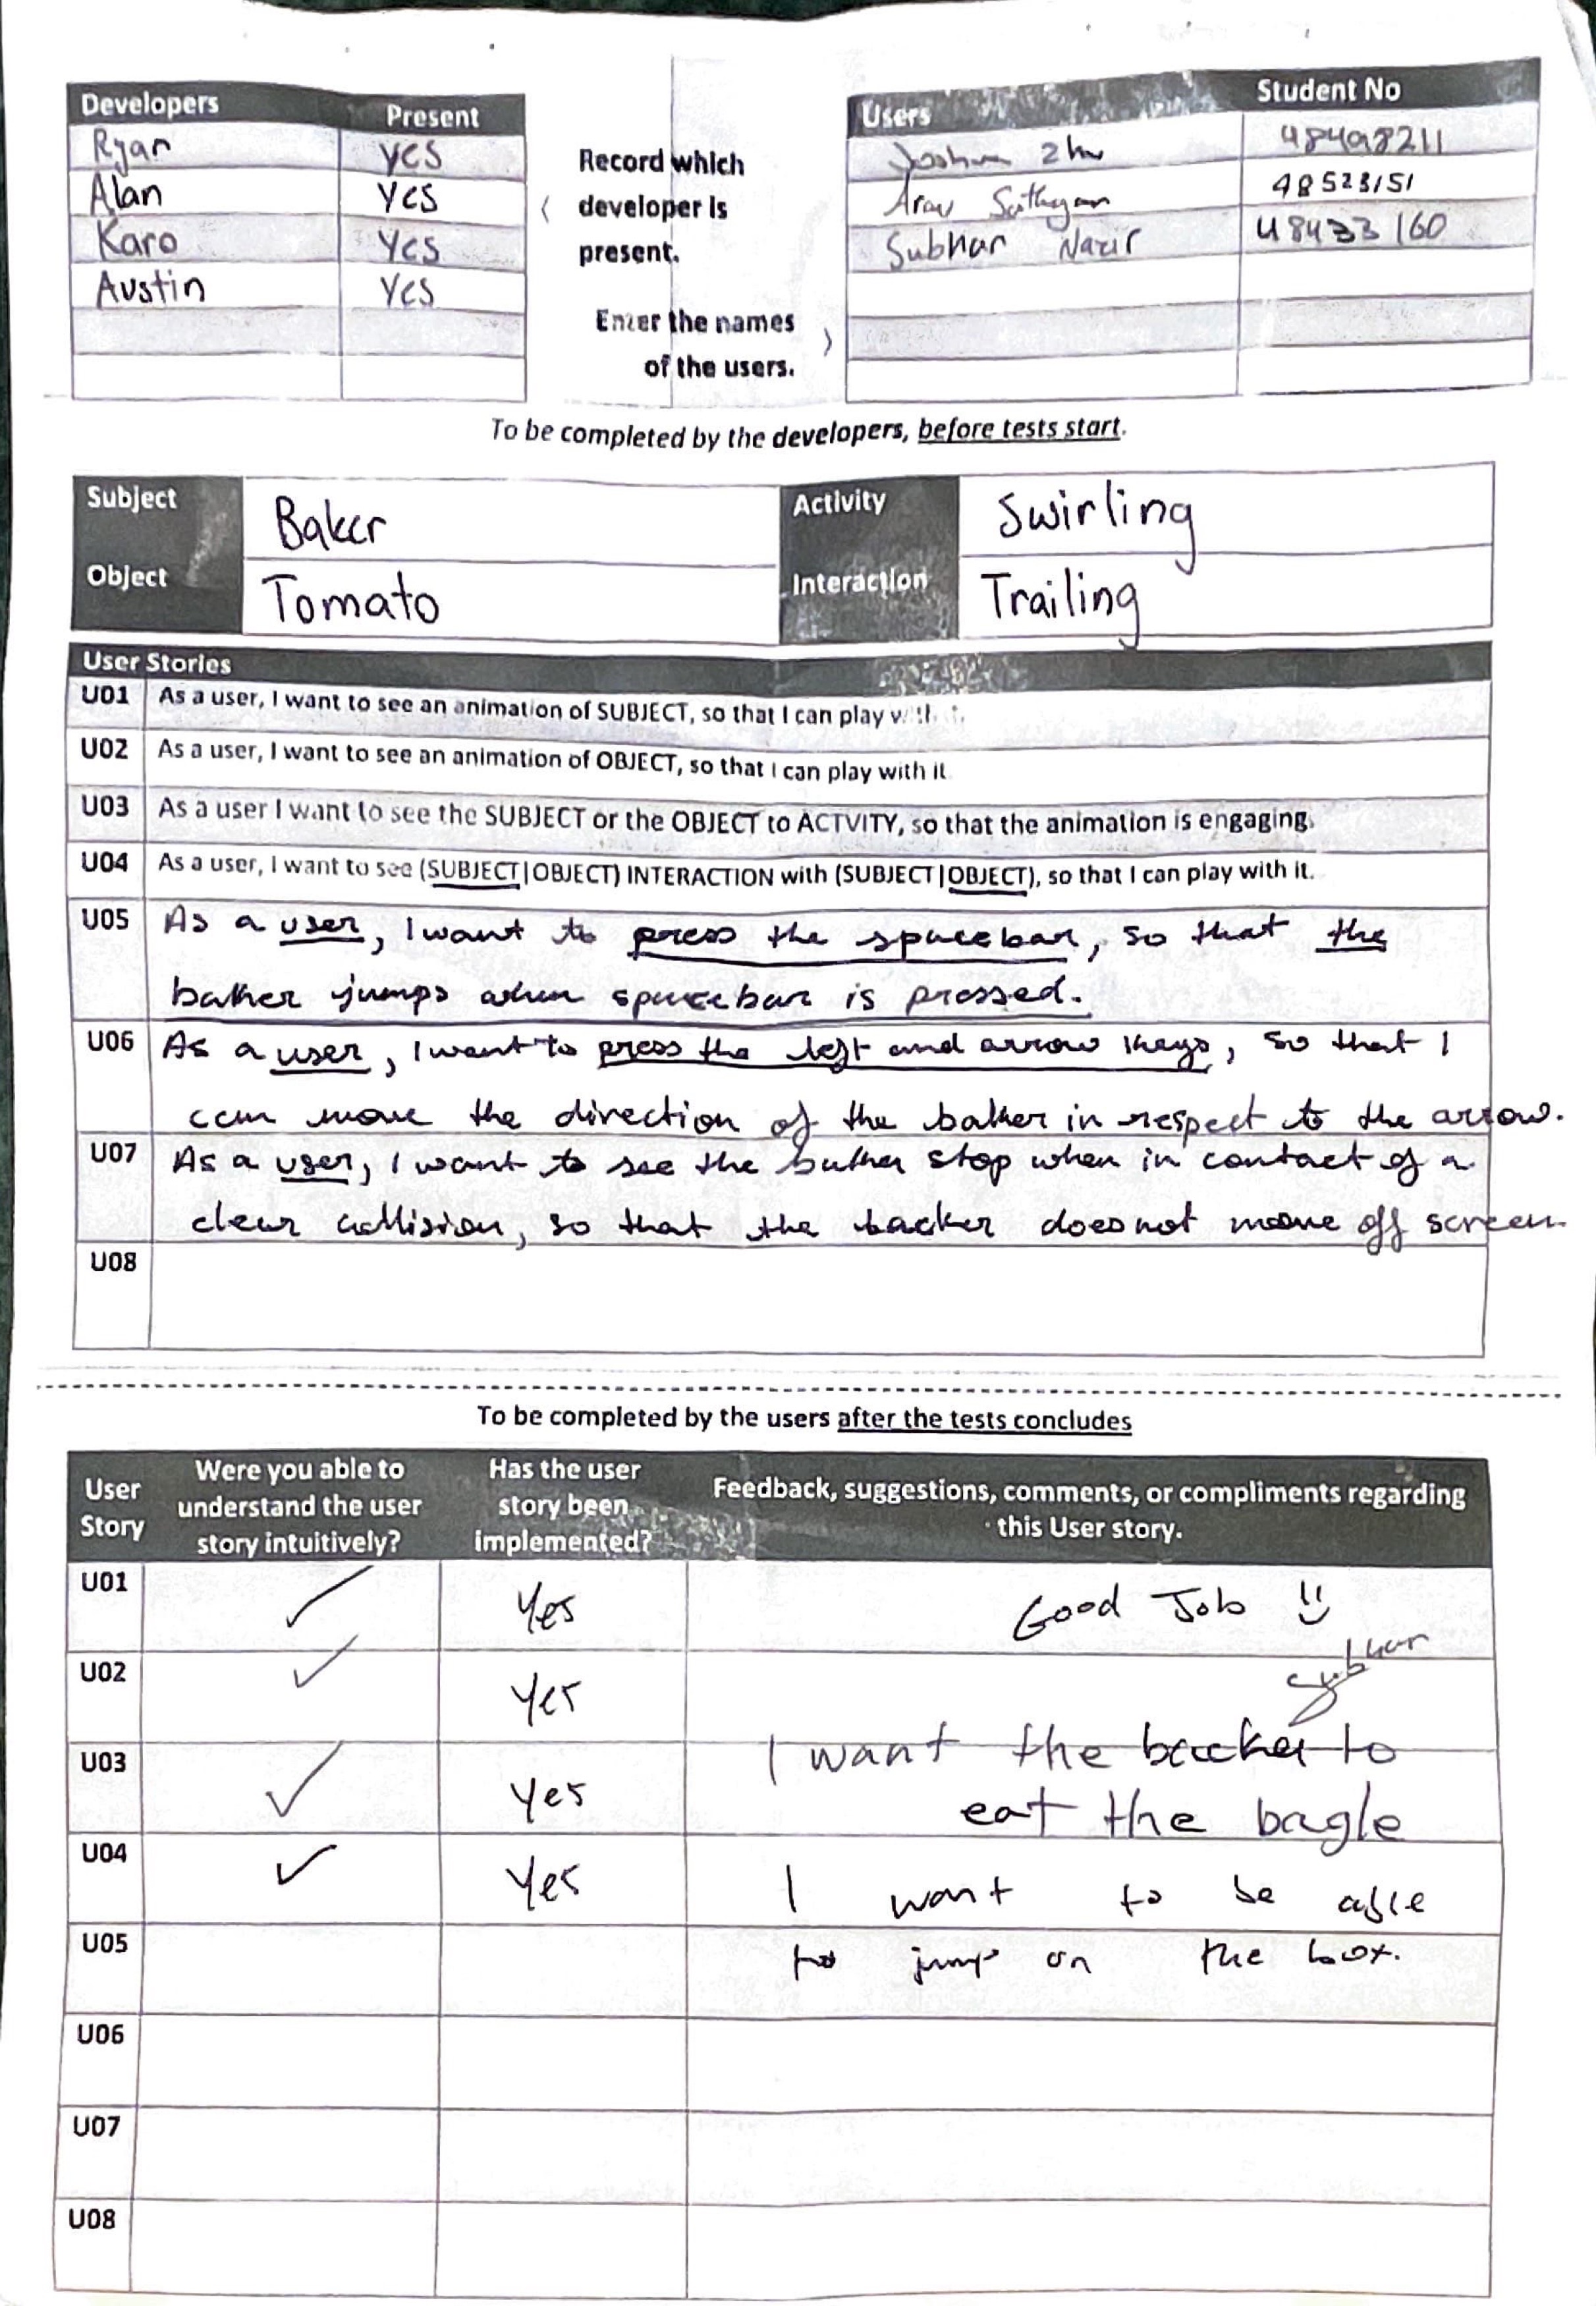 Developers Present
Ryan yes
Alan yes
Karo yes
Austin yes
Record which
developer is
present.
Enter the names
of the users.
Users Student No
Joshua Zhu 48498211
Arav 48523151
Subhan Nazir 48433160
To be completed by the developers, before tests start.
Subject Baker Activity Swirling
Object Tomato Interaction Trailing
User Stories
U01 As a user, I want to see an animation of SUBJECT, so that I can play with it.
U02 As a user, I want to see an animation of OBJECT, so that I can play with it
U03 As a user I want to see the SUBJECT or the OBJECT to ACTVITY, so that the animation is engaging.
U04 As a user, I want to see (SUBJECT|OBJECT) INTERACTION with (SUBJECT|OBJECT), so that I can play with it.
U05 As a user, I want to press the spacebar, so that the
baker jumps when spacebar is pressed.
U06 As a user, I want to press the left and arrow keys, so that I
can move the direction of the baker in respect to the arrow.
U07 As a user, I want to see the baker stop when in contact of a
clear collision, so that the backer does not move off screen.
U08
To be completed by the users after the tests concludes
User
Story
Were you able to
understand the user
story intuitively?
Has the user
story been
implemented?
Feedback, suggestions, comments, or compliments regarding
this User story.
U01 ✓ Yes Good Job
Subhan
U02 ✓ Yes
I want the backer to
U03 ✓ Yes eat the bagle
U04 ✓ Yes I want to be able
U05 to jump on the box.
U06
U07
U08